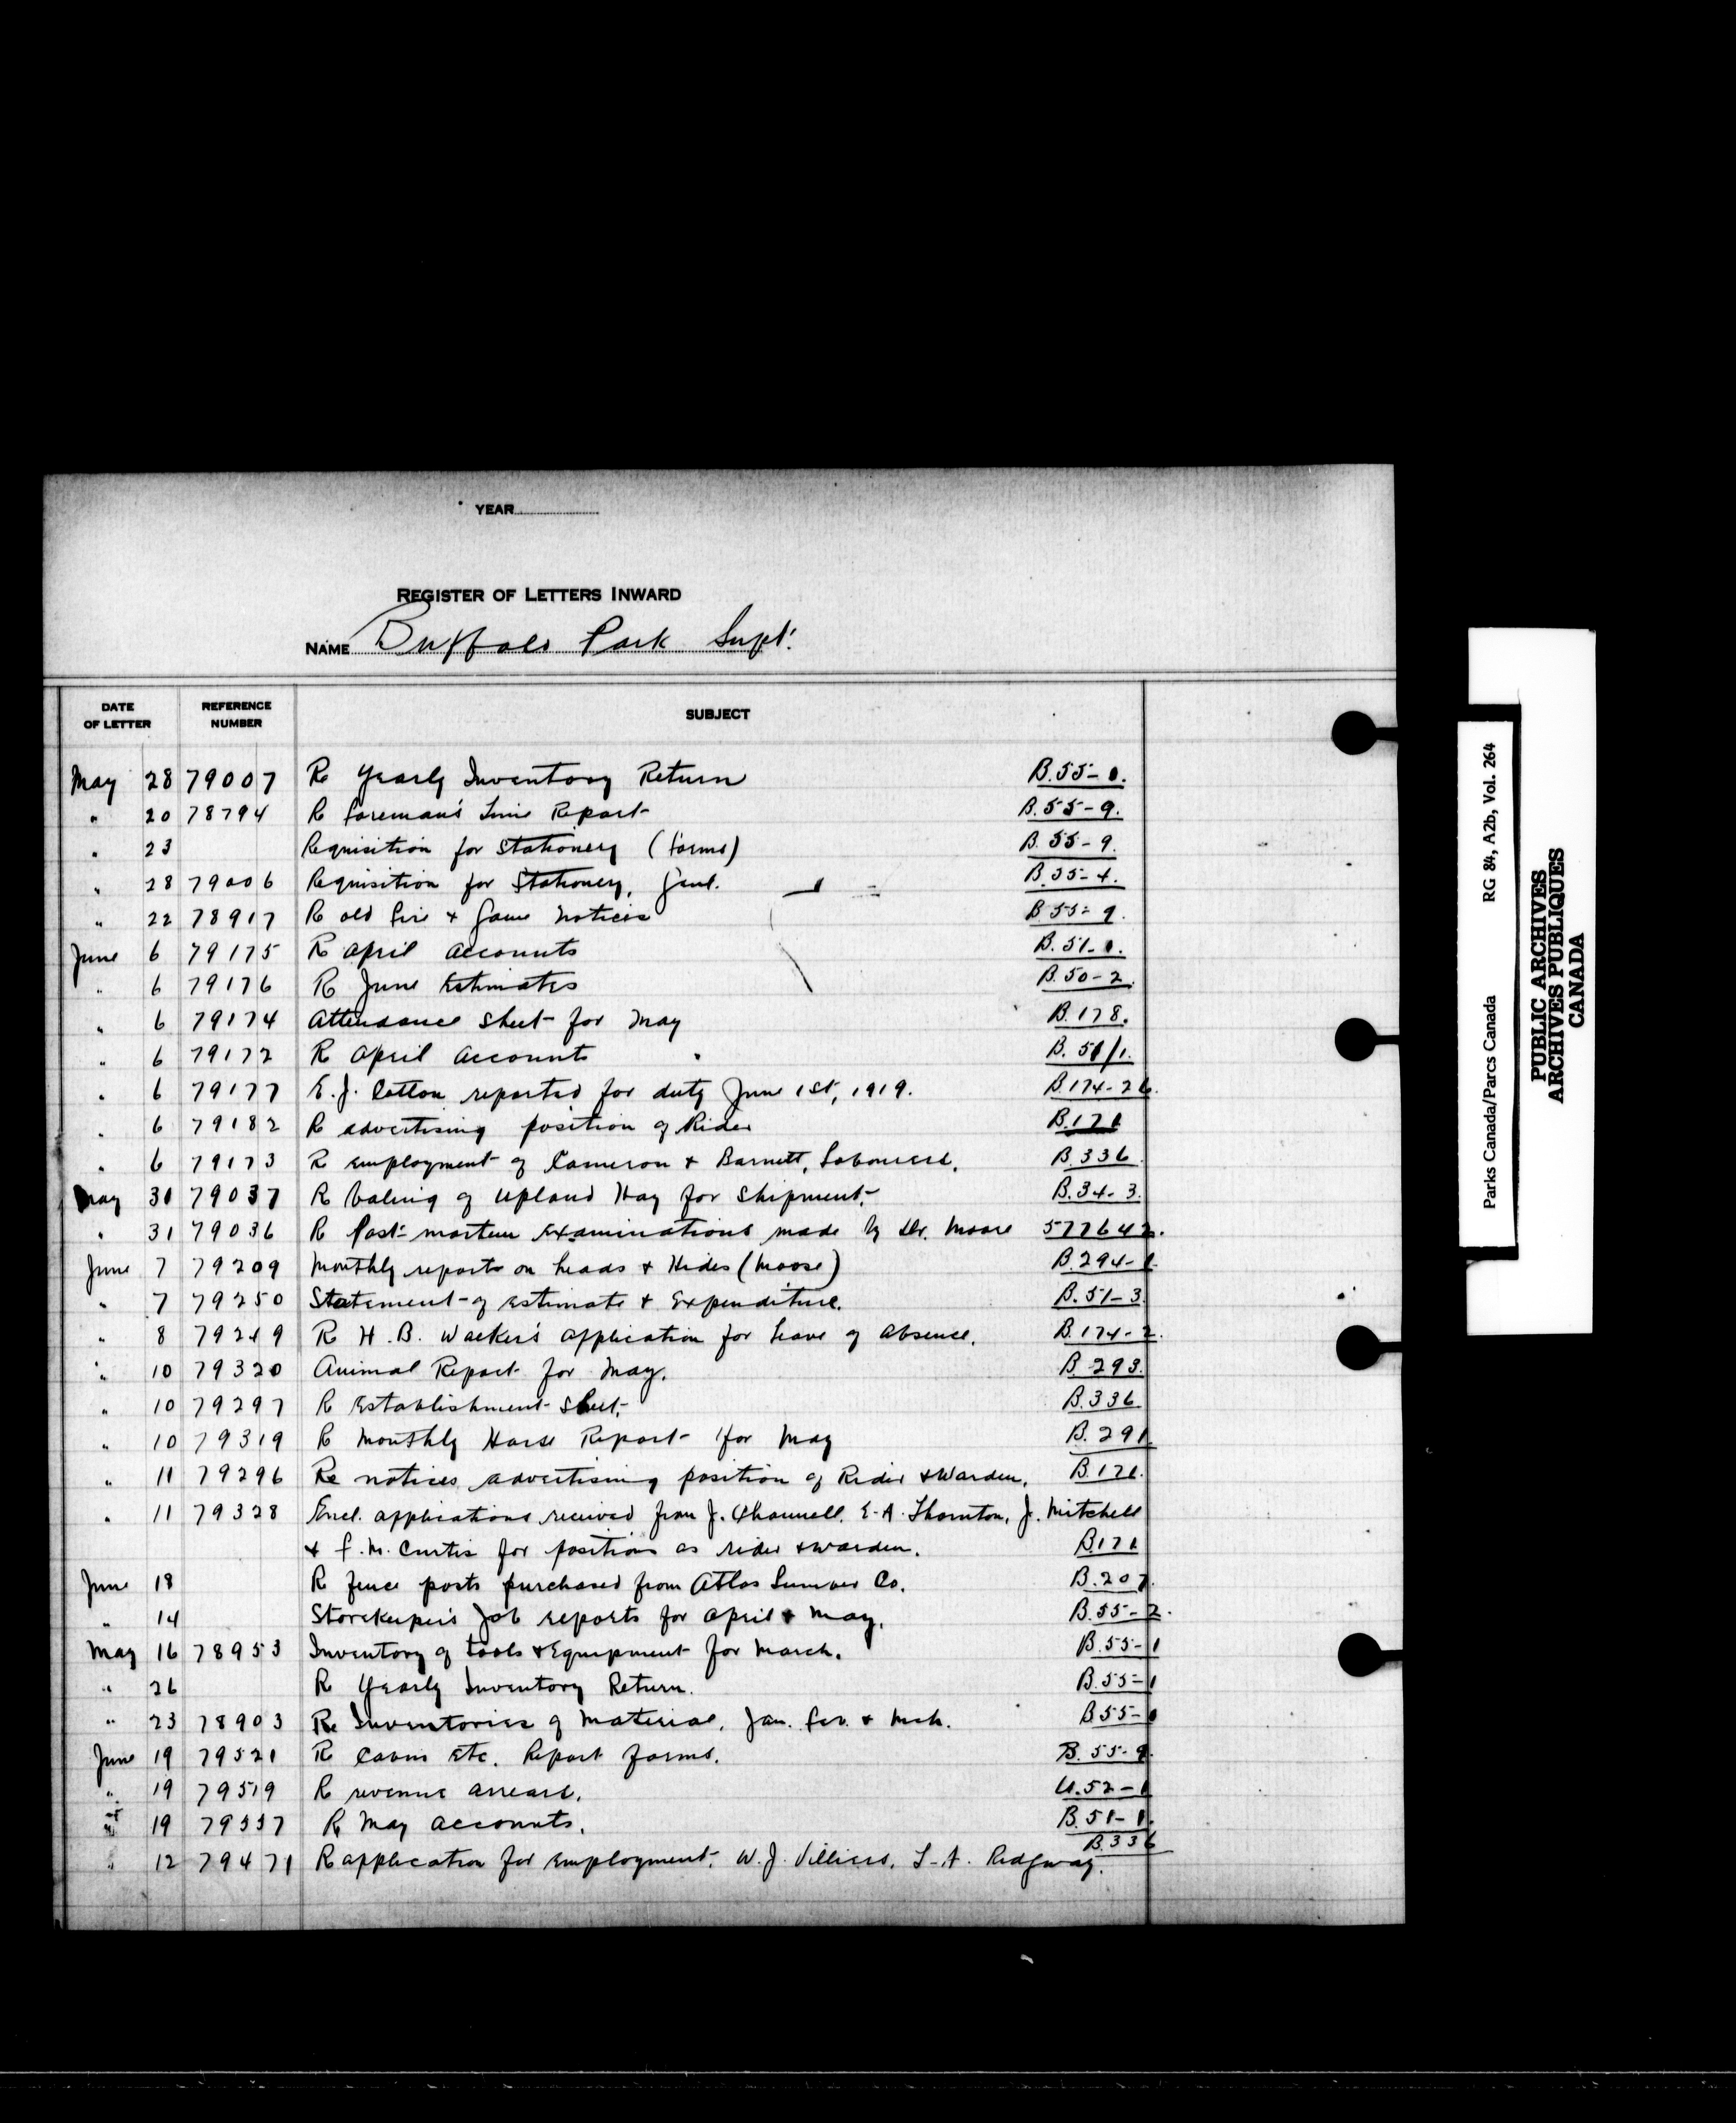 YEAR
REGISTER OF LETTERS INWARD
NAME Buffalo Park Supt.
DATE OF LETTER REFERENCE NUMBER SUBJECT
May 28 79007 Re Yearly Inventory Return B.55-1.
" 20 78794 Re foreman's Time Report B.55-9.
" 23 Requisition for Stationery (forms) B.55-9.
" 28 79006 Requisition for Stationery, Genl. B.35-4.
" 22 78917 Re old fire & Game notices B.55-9.
June 6 79175 Re April accounts B.51-1.
" 6 79176 Re June Estimates B.50-2.
" 6 79174 Attendance Sheet for May B.178.
" 6 79172 Re April accounts B.51/1.
" 6 79177 E.J. Cotton reported for duty June 1st, 1919. B.174-26.
" 6 79182 Re advertising position of Rider B.171
" 6 79173 Re employment of Cameron & Barnett, Labourers. B.336.
May 31 79037 Re baling of Upland Hay for Shipment. B.34-3.
" 31 79036 Re Post-mortem Examinations made by Dr. Moore 577642.
June 7 79209 Monthly reports on heads & Hides (Moose) B.294-1.
" 7 79250 Statement of estimate & Expenditure. B.51-3.
" 8 79249 Re H.B. Walker's application for leave of absence. B.174-2.
" 10 79320 Animal Report for May. B.293.
" 10 79297 Re Establishment Sheet. B.336
" 10 79319 Re Monthly Horse Report for May B.291
" 11 79296 Re notices advertising position of Rider & Warden. B.171.
" 11 79328 Encl. applications received from J. E.A. Thornton, J. Mitchell
& F.M. Curtis for positions as rider & warden. B171
June 18 Re fence posts purchased from Atlas Lumber Co. B.207.
" 14 Storekeeper's Job reports for April & May. B.55-2.
May 16 78953 Inventory of tools & Equipment for March. B.55-1
" 26 Re Yearly Inventory Return. B.55-1
" 23 78903 Re Inventories of Material, Jan. Feb. & Mch. B55-1
June 19 79521 Re Cabin Etc. Report forms. B.55-9.
" 19 79519 Re revenue arrears. U.52-1
" 19 79537 Re May accounts. B.51-1.
B.336
" 12 79471 Re application for employment. W.J. Villiers, L.A. Ridgway.
Parks Canada/Parcs Canada RG 84, A2b, Vol. 264
PUBLIC ARCHIVES
ARCHIVES PUBLIQUES
CANADA